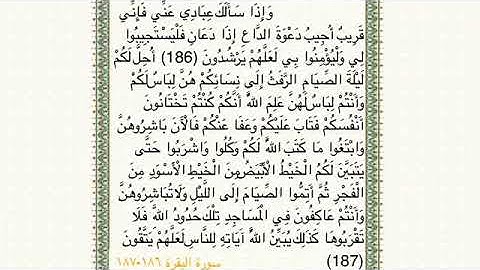 وَإِذَا سَأَلَكَ عِبَادِي عَنِّي فَإِنِّي
قَرِيبٌ أُجِيبُ دَعْوَةَ الدَّاعِ إِذَا دَعَانِ فَلْيَسْتَجِيبُوا
لِي وَلْيُؤْمِنُوا بِي لَعَلَّهُمْ يَرْشُدُونَ (186) أُحِلَّ لَكُمْ
لَيْلَةَ الصِّيَامِ الرَّفَثُ إِلَى نِسَائِكُمْ هُنَّ لِبَاسٌ لَكُمْ
وَأَنْتُمْ لِبَاسٌ لَهُنَّ عَلِمَ اللَّهُ أَنَّكُمْ كُنْتُمْ تَخْتَانُونَ
أَنْفُسَكُمْ فَتَابَ عَلَيْكُمْ وَعَفَا عَنْكُمْ فَالْآنَ بَاشِرُوهُنَّ
وَابْتَغُوا مَا كَتَبَ اللَّهُ لَكُمْ وَكُلُوا وَاشْرَبُوا حَتَّى
يَتَبَيَّنَ لَكُمُ الْخَيْطُ الْأَبْيَضُ مِنَ الْخَيْطِ الْأَسْوَدِ مِنَ
الْفَجْرِ ثُمَّ أَتِمُّوا الصِّيَامَ إِلَى اللَّيْلِ وَلَا تُبَاشِرُوهُنَّ
وَأَنْتُمْ عَاكِفُونَ فِي الْمَسَاجِدِ تِلْكَ حُدُودُ اللَّهِ فَلَا
تَقْرَبُوهَا كَذَلِكَ يُبَيِّنُ اللَّهُ آيَاتِهِ لِلنَّاسِ لَعَلَّهُمْ يَتَّقُونَ
(187)
سورة البقرة ١٨٦-١٨٧